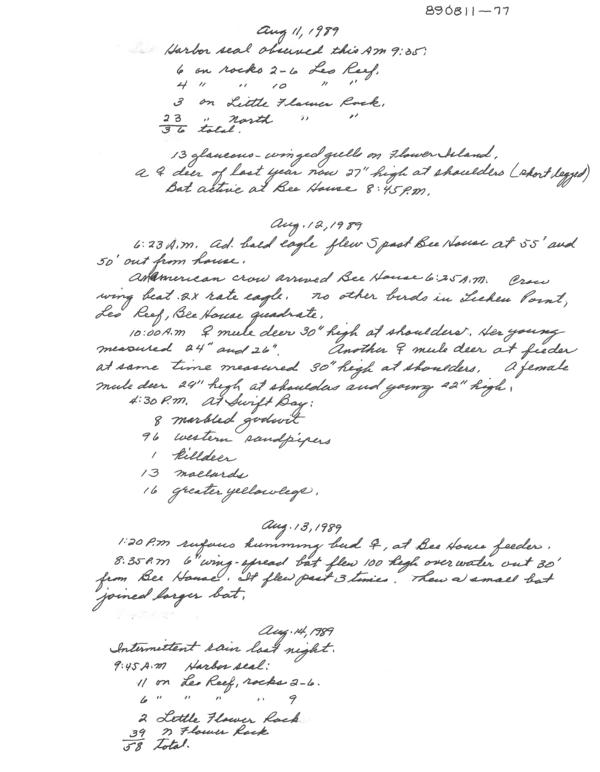 890811-77
Aug 11, 1989
Harbor seal observed this AM 9:35:
6 on rocks 2-6 Leo Reef.
4 " " 10 " "
3 on Little Flower Rock.
23 " North " "
36 total.
13 glaucous-winged gulls on Flower Island.
A ♀ deer of last year now 27" high at shoulders (short legged)
Bat active at Bee House 8:45 P.M.
Aug. 12, 1989
6:23 A.M. Ad. bald eagle flew S past Bee House at 55' and
50' out from house.
An American crow arrived Bee House 6:25 A.M. Crow
wing beat 2X rate eagle. no other birds in Lichen Point,
Leo Reef, Bee House quadrate.
10:00 A.M ♀ mule deer 30" high at shoulders. Her young
measured 24" and 26". Another ♀ mule deer at feeder
at same time measured 30" high at shoulders. A female
mule deer 29" high at shoulders and young 22" high.
4:30 P.M. At Swift Bay:
8 marbled godwit
96 western sandpipers
1 killdeer
13 mallards
16 greater yellowlegs.
Aug. 13, 1989
1:20 P.M rufous humming bird ♀, at Bee House feeder.
8:35 P.M 6" wing-spread bat flew 100 high over water out 30'
from Bee House. It flew past 3 times. Then a small bat
joined larger bat.
Aug. 14, 1989
Intermittent rain last night.
9:45 A.M Harbor seal:
11 on Leo Reef, rocks 2-6.
6 " " " " 9
2 Little Flower Rock
39 N Flower Rock
58 Total.